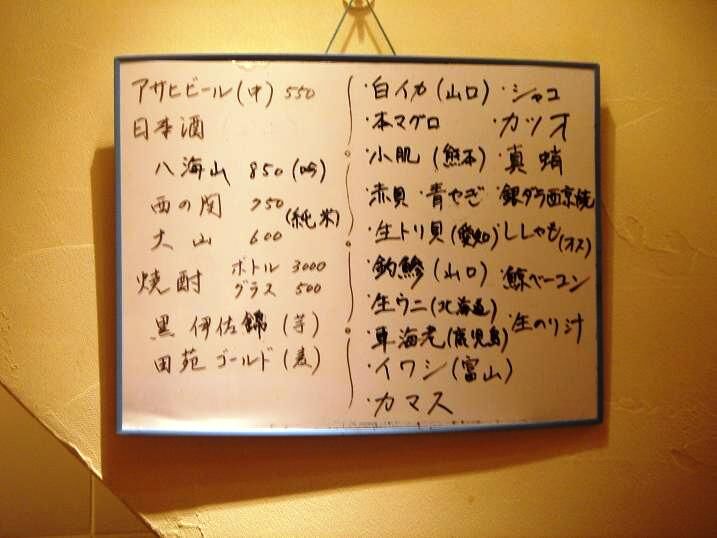 アサヒビール(中) 550
日本酒
八海山 850(吟)
西の関 750
(純米)
大山 600
焼酎 ボトル 3000
グラス 500
黒伊佐錦(芋)
田苑ゴールド(麦)
・白イカ(山口)
・本マグロ
・小肌(熊本)
・赤貝・青やぎ
・生トリ貝(愛知)
・釣鯵(山口)
・生ウニ(北海道)
・車海老(鹿児島)
・イワシ(富山)
・カマス
・シャコ
・カツオ
・真蛸
・銀ダラ西京焼
・ししゃも(オス)
・鯨ベーコン
・生のり汁